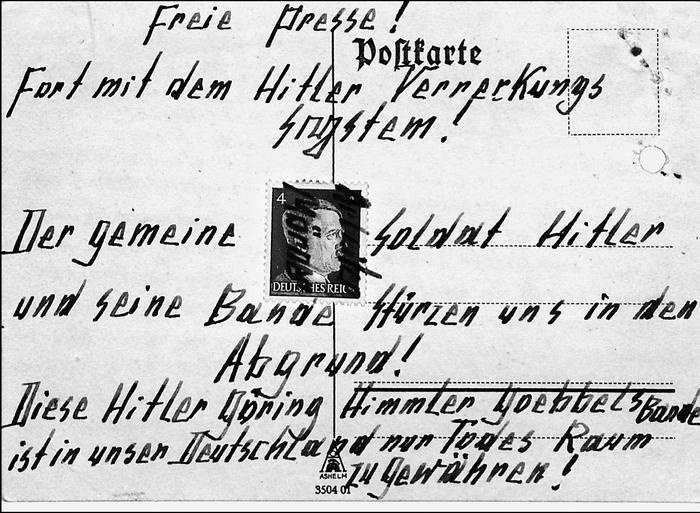 Freie Presse!
Postkarte
Fort mit dem Hitler Verrerkungs
system!
4
DEUTSCHES REICH
Der gemeine Soldat Hitler
und seine Bande stürzen uns in den
Abgrund!
Diese Hitler Göring Himmler Goebbels Bande
ist in unser Deutschland nur Todes Raum
zu gewähren!
ASHELM
3504 01